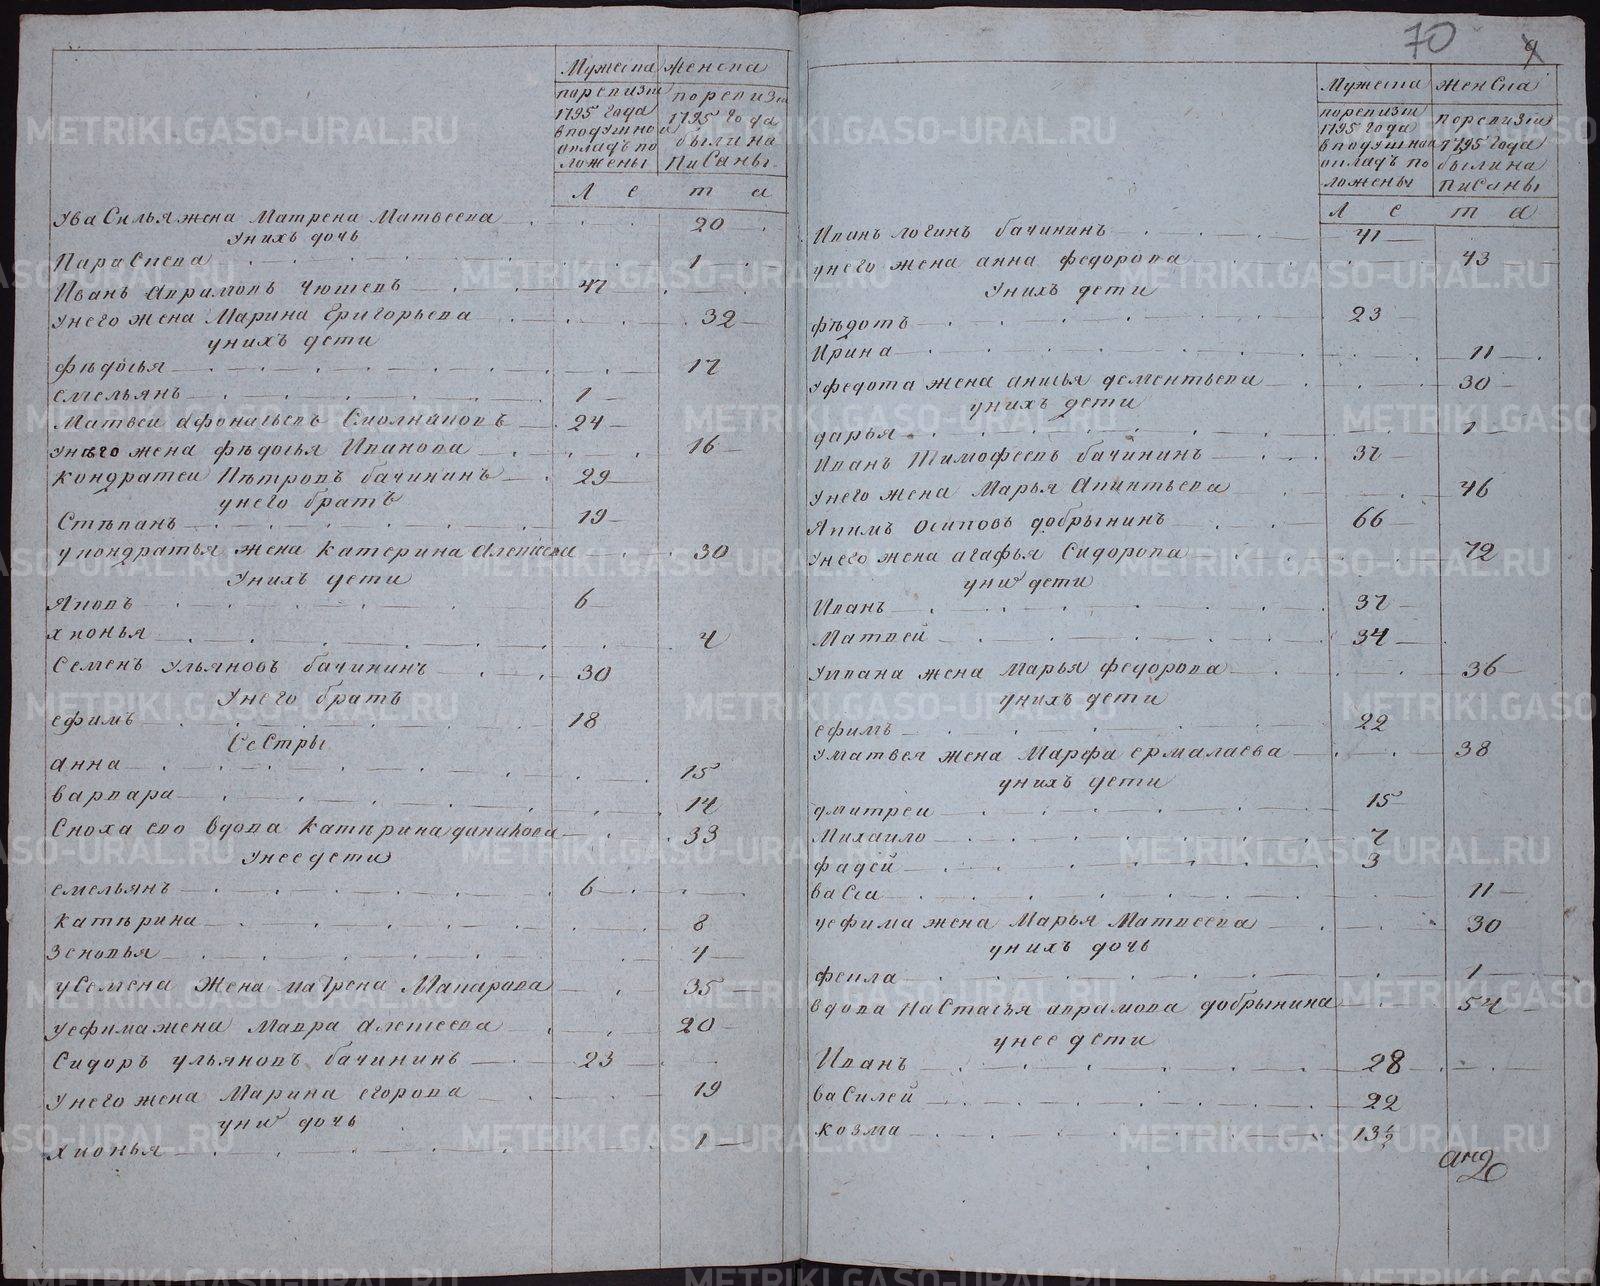 Мужеска Женска
поревизiи 1795 года в подушной оклад по ложены
поревизiи 1795 года были на писаны
Л е т а
у василья жена Матрена Матвеева 20
у нихъ дочь
Параскева 1
Иванъ Аврамовъ Чюшевъ 47
у него жена Марина Григорьева 32
у нихъ дети
фѣдосья 17
емельянъ 1
Матвеи Афонасьевъ Смолниковъ 24
у нѣго жена фѣдосья Иванова 16
кондратеи Пѣтровъ бачининъ 29
у него братъ
Стѣпанъ 19
у кондратья жена катерина Алексеева 30
у нихъ дети
Яковъ 6
хионья 4
Семенъ Ульяновъ бачининъ 30
у него братъ
ефимъ 18
Сестры
анна 15
варвара 14
Сноха ево вдова катѣрина данилова 33
у нее дети
емельянъ 6
катѣрина 8
Зеновья 4
у Семена Жена матрена Макарова 35
у ефима жена Мавра Алексеева 20
Сидоръ ульяновъ бачининъ 23
у него жена Марина егорова 19
у них дочь
хионья 1
70
9
Мужеска Женска
поревизiи 1795 года в подушной оклад по ложены
поревизiи 1795 года были на писаны
Л е т а
Иванъ логинъ бачининъ 41
у него жена анна федорова 43
у нихъ дети
фѣдотъ 23
Ирина 11
у федота жена анисья дементьева 30
у нихъ дети
дарья 1
Иванъ Тимофеевъ бачининъ 37
у него жена Марья Акинтьева 46
Якимъ осиповъ добрынинъ 66
у него жена агафья Сидорова 72
у них дети
Иванъ 37
Матвей 34
у ивана жена Марья федорова 36
у нихъ дети
ефимъ 22
у матвея жена Марфа ермалаева 38
у нихъ дети
дмитреи 15
Михаило 7
фадей 3
васса 11
у ефима жена Марья Матвеева 30
у нихъ дочь
феила 1
вдова Настасья аврамова добрынина 54
у нее дети
Иванъ 28
василей 22
козма 13½